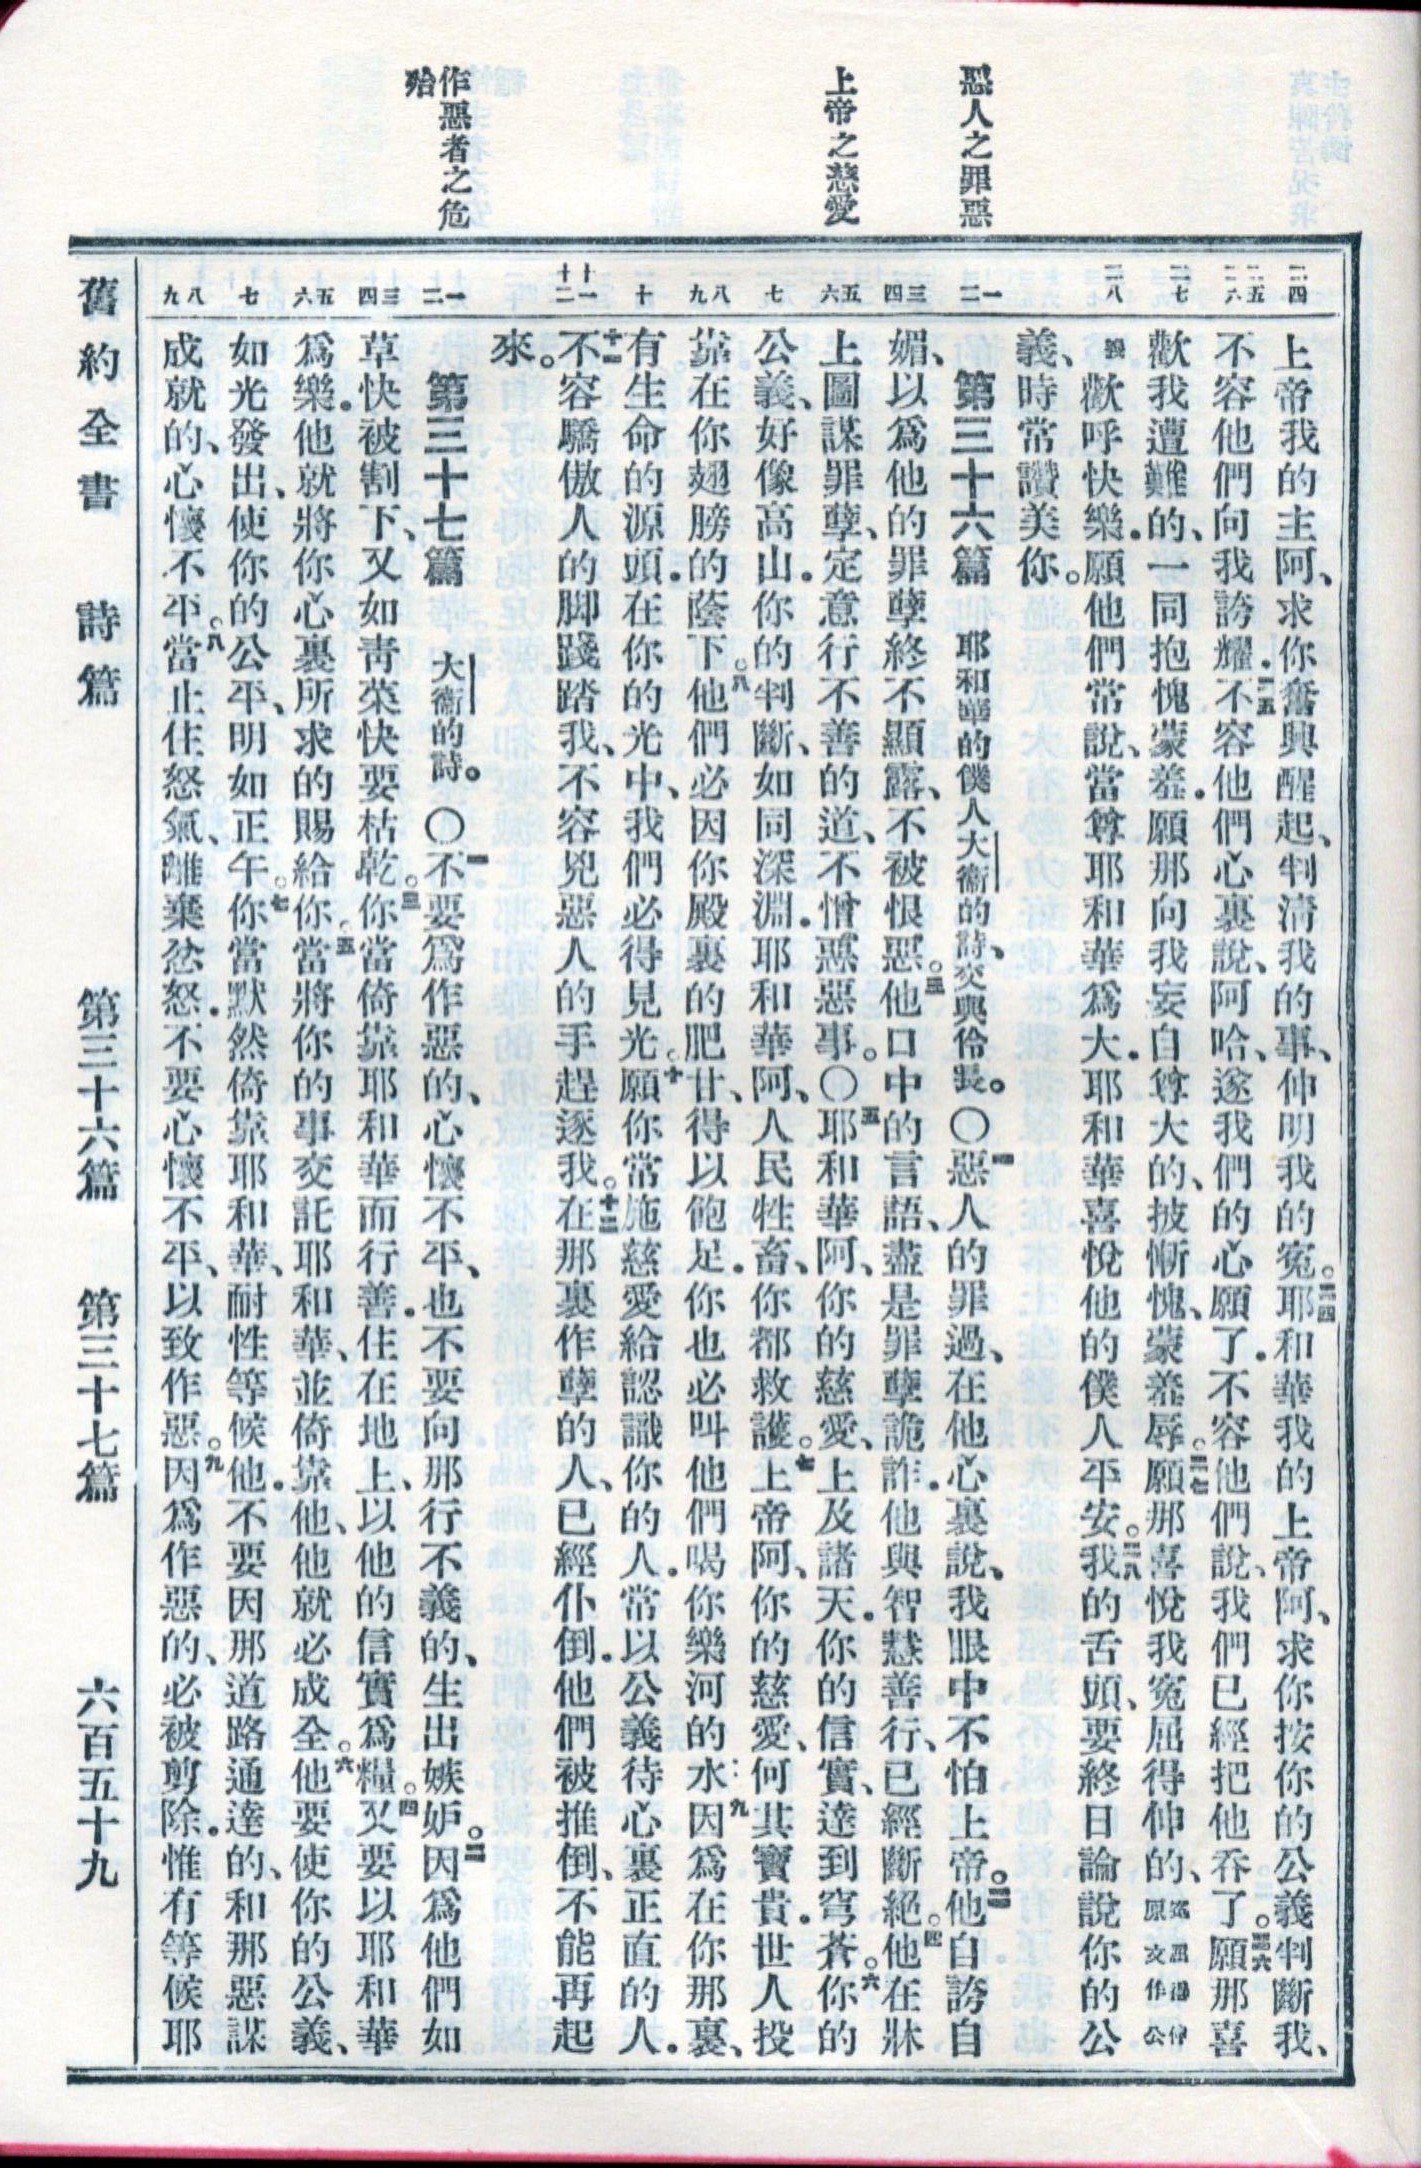 惡人之罪惡
上帝之慈愛
作惡者之危
殆
二四
二五 二六
二七
二八
一 二
三 四
五 六
七
八 九
十
十一 十二
一 二
三 四
五 六
七
八 九
上帝我的主阿、求你奮興醒起、判淸我的事、伸明我的寃。二四耶和華我的上帝阿、求你按你的公義判斷我、
不容他們向我誇耀．二五不容他們心裏說、阿哈、遂我們的心願了．不容他們說、我們已經把他吞了。二六願那喜
歡我遭難的、一同抱愧蒙羞．願那向我妄自尊大的、披慚愧、蒙羞辱。二七願那喜悅我寃屈得伸的、寃屈得伸原文作公
義歡呼快樂．願他們常說、當尊耶和華爲大．耶和華喜悅他的僕人平安。二八我的舌頭、要終日論說你的公
義、時常讚美你。
第三十六篇 耶和華的僕人大衞的詩、交與伶長。〇一惡人的罪過、在他心裏說、我眼中不怕上帝。二他自誇自
媚、以爲他的罪孽終不顯露、不被恨惡。三他口中的言語、盡是罪孽詭詐．他與智慧善行、已經斷絕。四他在牀
上圖謀罪孽、定意行不善的道、不憎惡惡事。〇五耶和華阿、你的慈愛、上及諸天．你的信實、達到穹蒼。六你的
公義、好像高山．你的判斷、如同深淵．耶和華阿、人民牲畜、你都救護。七上帝阿、你的慈愛、何其寶貴．世人投
靠在你翅膀的蔭下。八他們必因你殿裏的肥甘、得以飽足．你也必叫他們喝你樂河的水．九因爲在你那裏、
有生命的源頭．在你的光中、我們必得見光。十願你常施慈愛給認識你的人．常以公義待心裏正直的人．
十一不容驕傲人的脚踐踏我、不容兇惡人的手趕逐我。十二在那裏作孽的人、已經仆倒．他們被推倒、不能再起
來。
第三十七篇 大衞的詩。〇一不要爲作惡的、心懷不平、也不要向那行不義的、生出嫉妒。二因爲他們如
草快被割下、又如靑菜快要枯乾。三你當倚靠耶和華而行善．住在地上、以他的信實爲糧。四又要以耶和華
爲樂．他就將你心裏所求的賜給你。五當將你的事交託耶和華、並倚靠他、他就必成全。六他要使你的公義、
如光發出、使你的公平、明如正午。七你當默然倚靠耶和華、耐性等候他．不要因那道路通達的、和那惡謀
成就的、心懷不平。八當止住怒氣、離棄忿怒．不要心懷不平、以致作惡。九因爲作惡的、必被剪除．惟有等候耶
舊約全書 詩篇 第三十六篇 第三十七篇 六百五十九